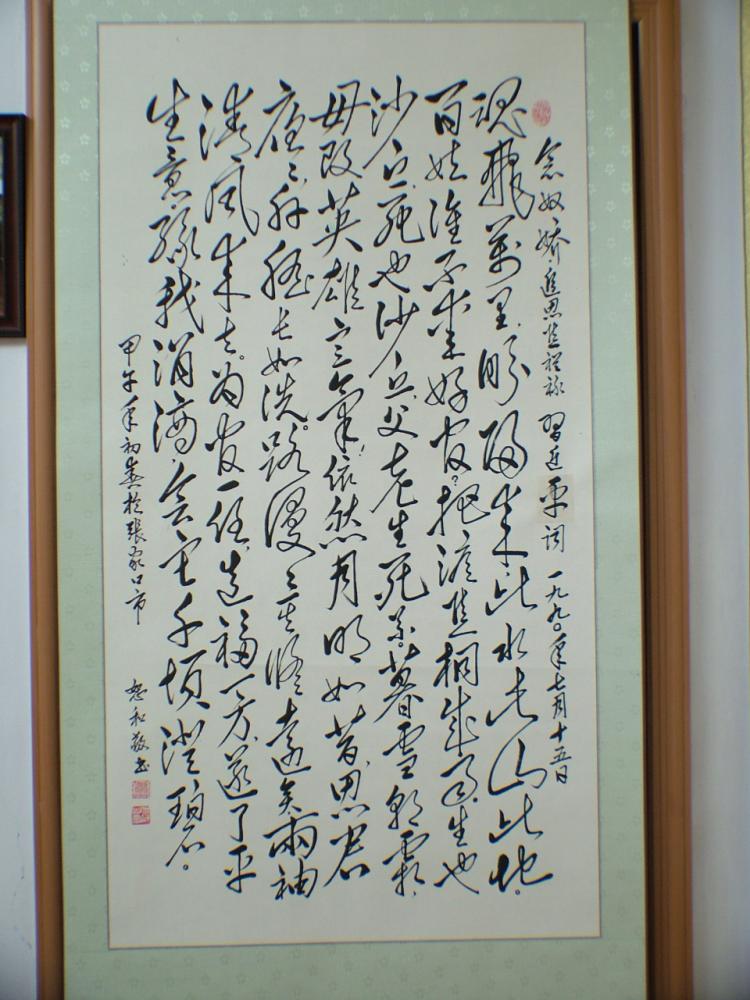 念奴嬌·追思焦裕祿 習近平詞 一九九〇年七月十五日
魂飛萬里,盼歸來,此水此山此地。
百姓誰不愛好官?把淚焦桐成雨。生也
沙丘,死也沙丘,父老生死系。暮雪朝霜,
毋改英雄意氣。依然月明如昔,思君
夜〻,肝膽长如洗。路漫〻其修遠矣,兩袖
清風来去。为官一任,造福一方,遂了平
生意。綠我涓滴,會它千頃澄碧。
甲午年初春於張家口市 和敬書